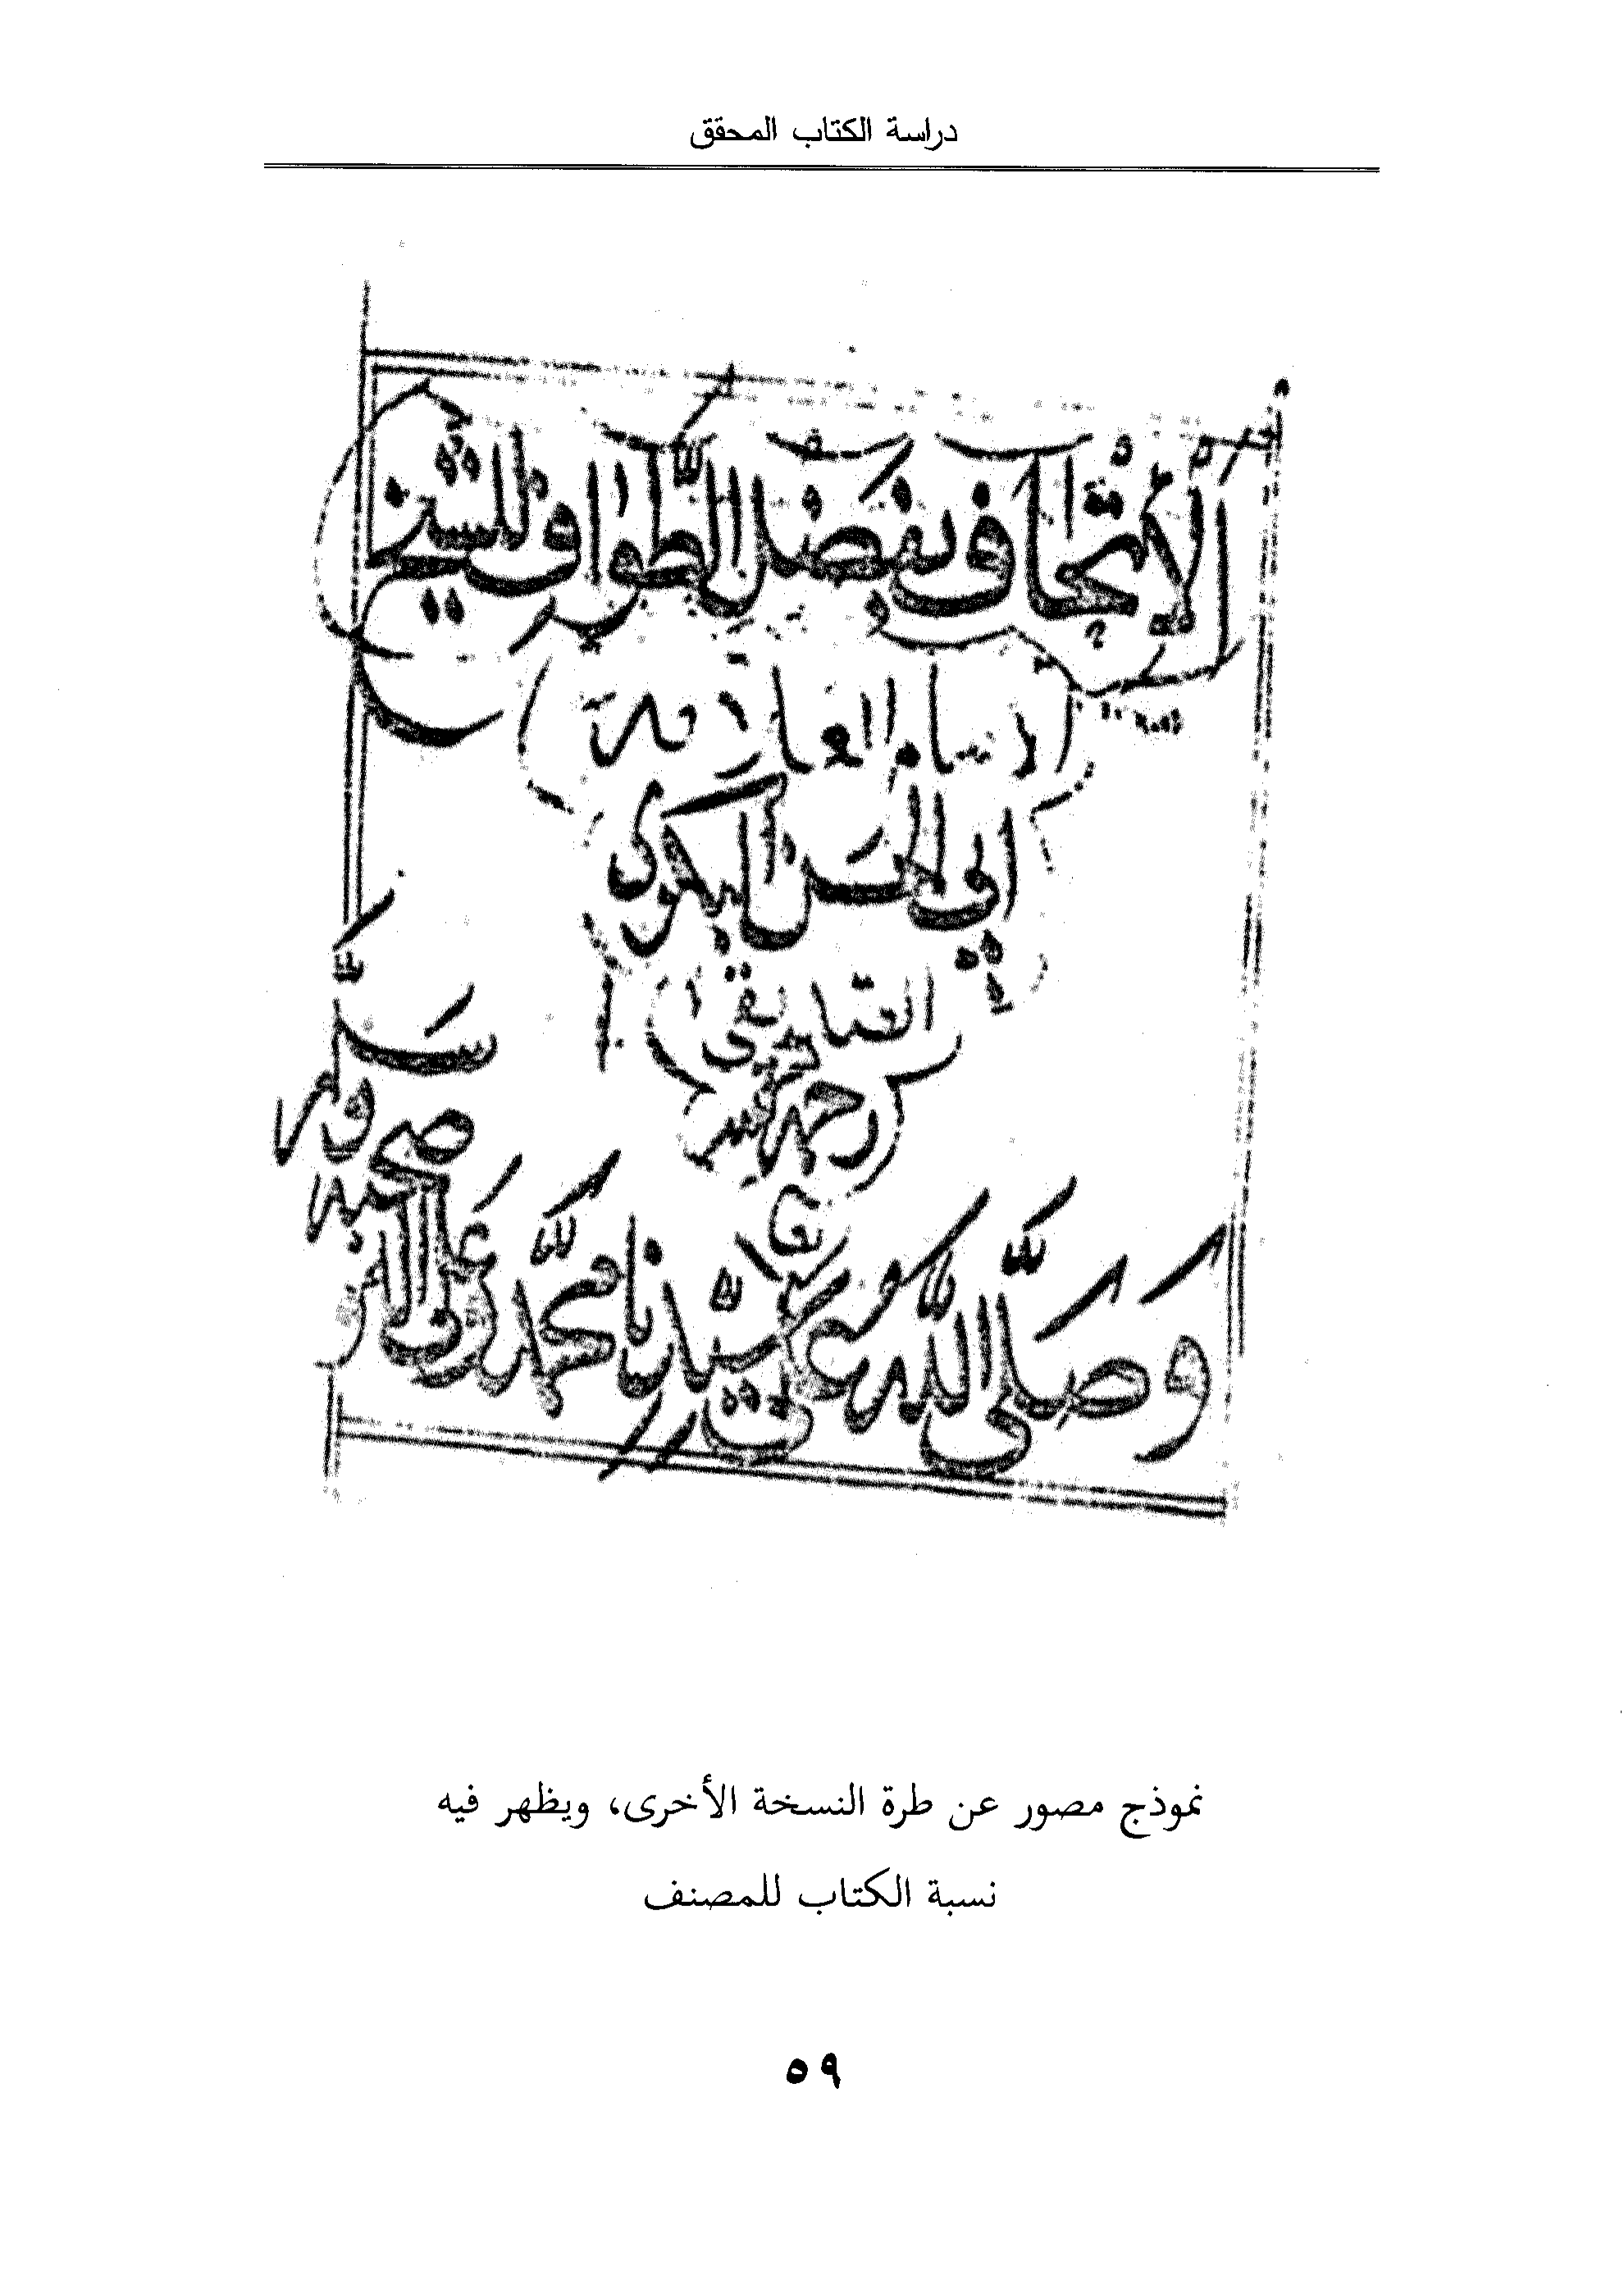 دراسة الكتاب المحقق
الإتحاف بفضل الطواف للشيخ
الإمام العلامة
أبي الحسن البكري
الصديقي
رحمه
تعالى
وصلى الله على سيدنا محمد وعلى اله
وصحبه
وسلم
نموذج مصور عن طرة النسخة الأخرى، ويظهر فيه
نسبة الكتاب للمصنف
٥٩